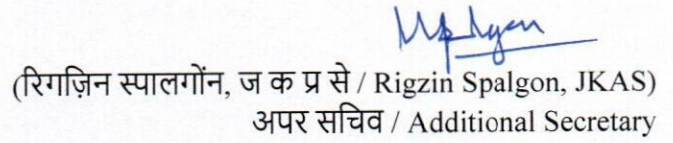 (रिगज़िन स्पालगोंन, ज क प्र से / Rigzin Spalgon, JKAS)
अपर सचिव / Additional Secretary